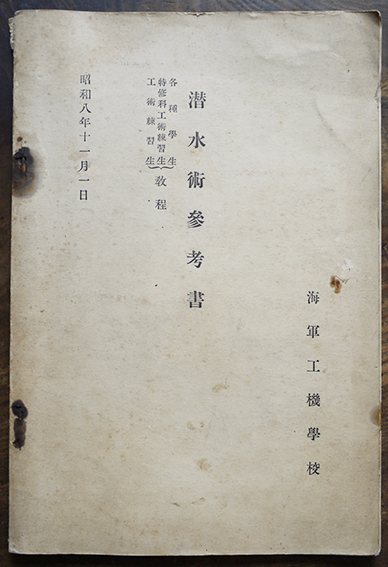 海軍工機學校
潜水術參考書
各種學生
特修科工術練習生
工術練習生
教程
昭和八年十一月一日